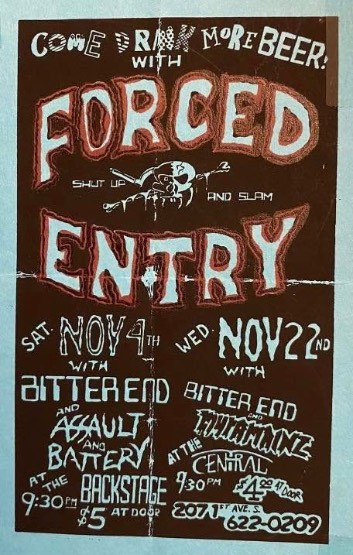 COME DRINK MORE BEER!
WITH
FORCED
SHUT UP AND SLAM
ENTRY
SAT. NOV 4TH
WITH
BITTER END
AND
ASSAULT
AND
BATTERY
AT THE BACKSTAGE
9:30PM $5 AT DOOR
WED. NOV 22ND
WITH
BITTER END
AND
AT THE CENTRAL
9:30 PM $4.00 AT DOOR
207 1ST AVE. S.
622-0209